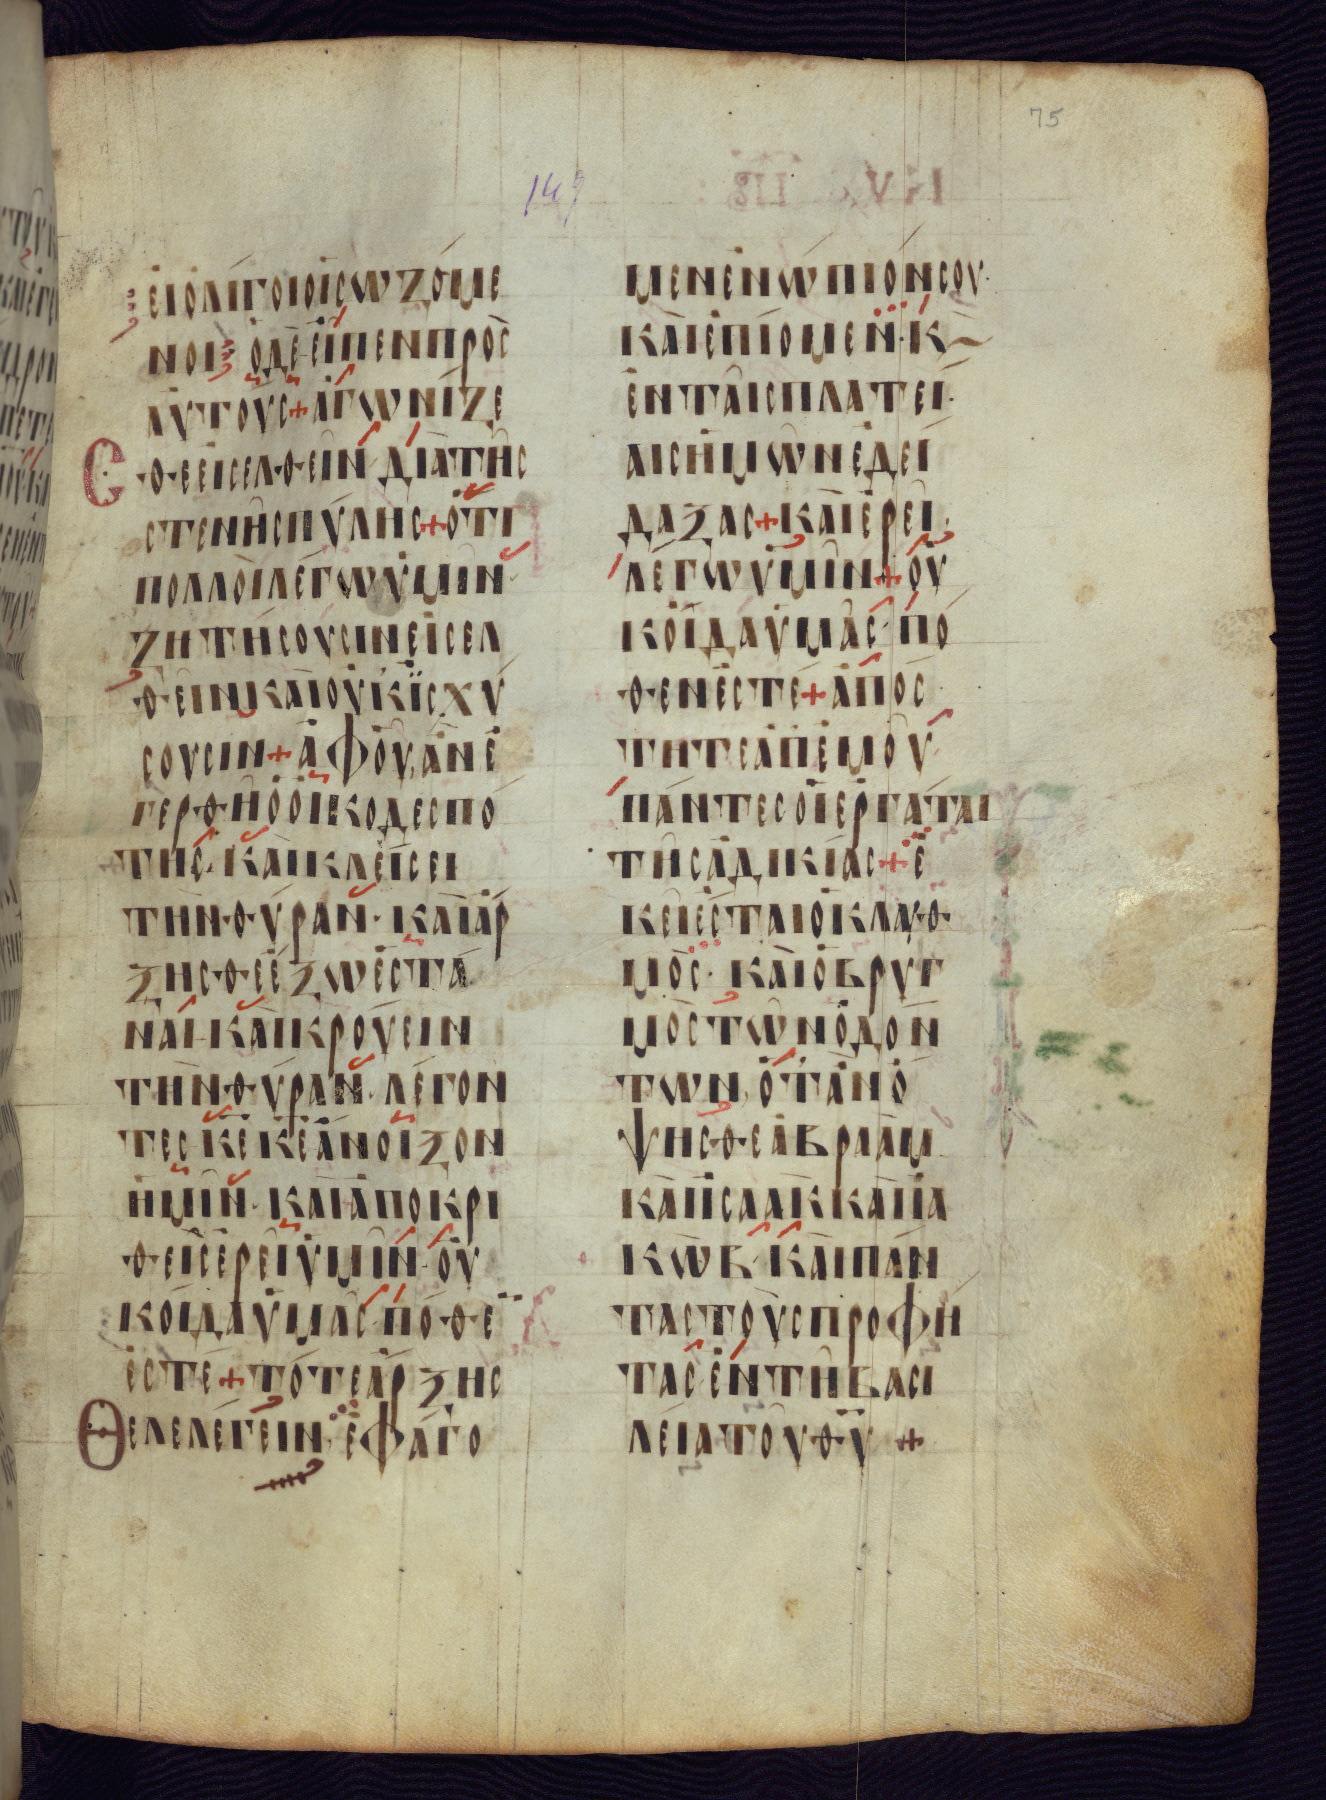 75
149
ΕΙΟΛΙΓΟΙΟΙCѠΖΟΜΕ
ΝΟΙ ΟΔΕΕΙΠΕΝΠΡΟC
ΑΥΤΟΥC+ΑΓѠΝΙΖΕ
CΘΕΕΙCΕΛΘΕΙΝ ΔΙΑΤΗC
CΤΕΝΗCΠΥΛΗC+ΟΤΙ
ΠΟΛΛΟΙΛΕΓѠΥΜΙΝ·
ΖΗΤΗCΟΥCΙΝΕΙCΕΛ
ΘΕΙΝΚΑΙΟΥΚΙCΧΥ
CΟΥCΙΝ+ΑΦΟΥΑΝΕ
ΓΕΡΘΗΟΟΙΚΟΔΕCΠΟ
ΤΗC·ΚΑΙΚΛΕΙCΕΙ
ΤΗΝΘΥΡΑΝ·ΚΑΙΑΡ
ΞΗCΘΕΕΞѠΕCΤΑ
ΝΑΙ·ΚΑΙΚΡΟΥΕΙΝ
ΤΗΝΘΥΡΑΝ·ΛΕΓΟΝ
ΤΕC ΚΕ ΚΕΑΝΟΙΞΟΝ
ΗΜΙΝ·ΚΑΙΑΠΟΚΡΙ
ΘΕΙCΕΡΕΙΥΜΙΝ·ΟΥ
ΚΟΙΔΑΥΜΑC·ΠΟΘΕ
ΕCΤΕ+ΤΟΤΕΑΡΞΗC
ΘΕΛΕΛΕΓΕΙΝ·ΕΦΑΓΟ
ΜΕΝΕΝѠΠΙΟΝCΟΥ·
ΚΑΙΕΠΙΟΜΕΝ·Κ
ΕΝΤΑΙCΠΛΑΤΕΙ·
ΑΙCΗΜѠΝΕΔΕΙ
ΔΑΞΑC+ΚΑΙΕΡΕΙ·
ΛΕΓѠΥΜΙΝ+ΟΥ
ΚΟΙΔΑΥΜΑC·ΠΟ
ΘΕΝΕCΤΕ+ΑΠΟC
ΤΗΤΕΑΠΕΜΟΥ·
ΠΑΝΤΕCΟΙΕΡΓΑΤΑΙ
ΤΗCΑΔΙΚΙΑC+Ε
ΚΕΙΕCΤΑΙΟΚΛΑΥΘ
ΜΟC·ΚΑΙΟΒΡΥΓ
ΜΟCΤѠΝΟΔΟΝ
ΤѠΝ·ΟΤΑΝΟ
ΨΗCΘΕΑΒΡΑΑΜ
ΚΑΙΙCΑΑΚΚΑΙΙΑ
ΚѠΒ·ΚΑΙΠΑΝ
ΤΑCΤΟΥCΠΡΟΦΗ
ΤΑC·ΕΝΤΗΒΑCΙ
ΛΕΙΑΤΟΥΘΥ +